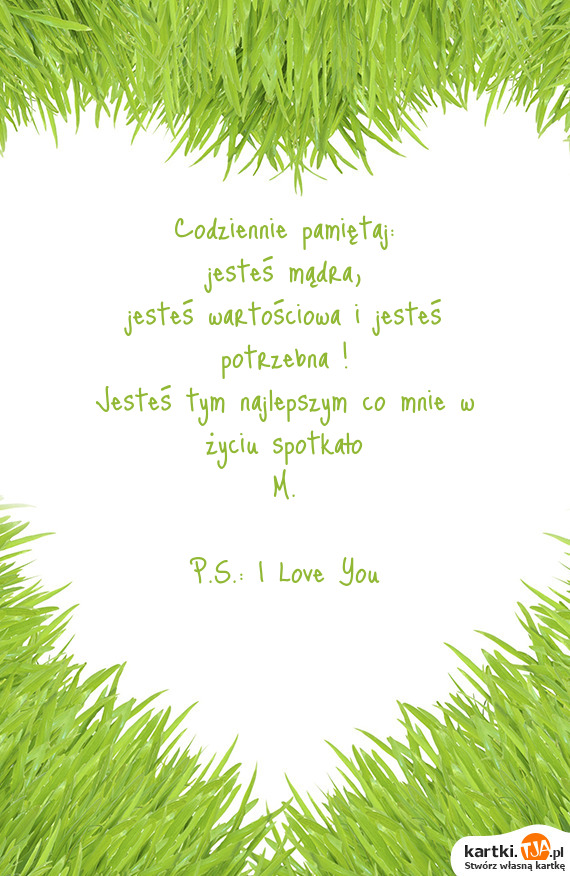 Codziennie pamiętaj:
jesteś mądra,
jesteś wartościowa i jesteś
potrzebna !
Jesteś tym najlepszym co mnie w
życiu spotkało
M.
P.S.: I Love You
kartki.TJA.pl
Stwórz własną kartkę